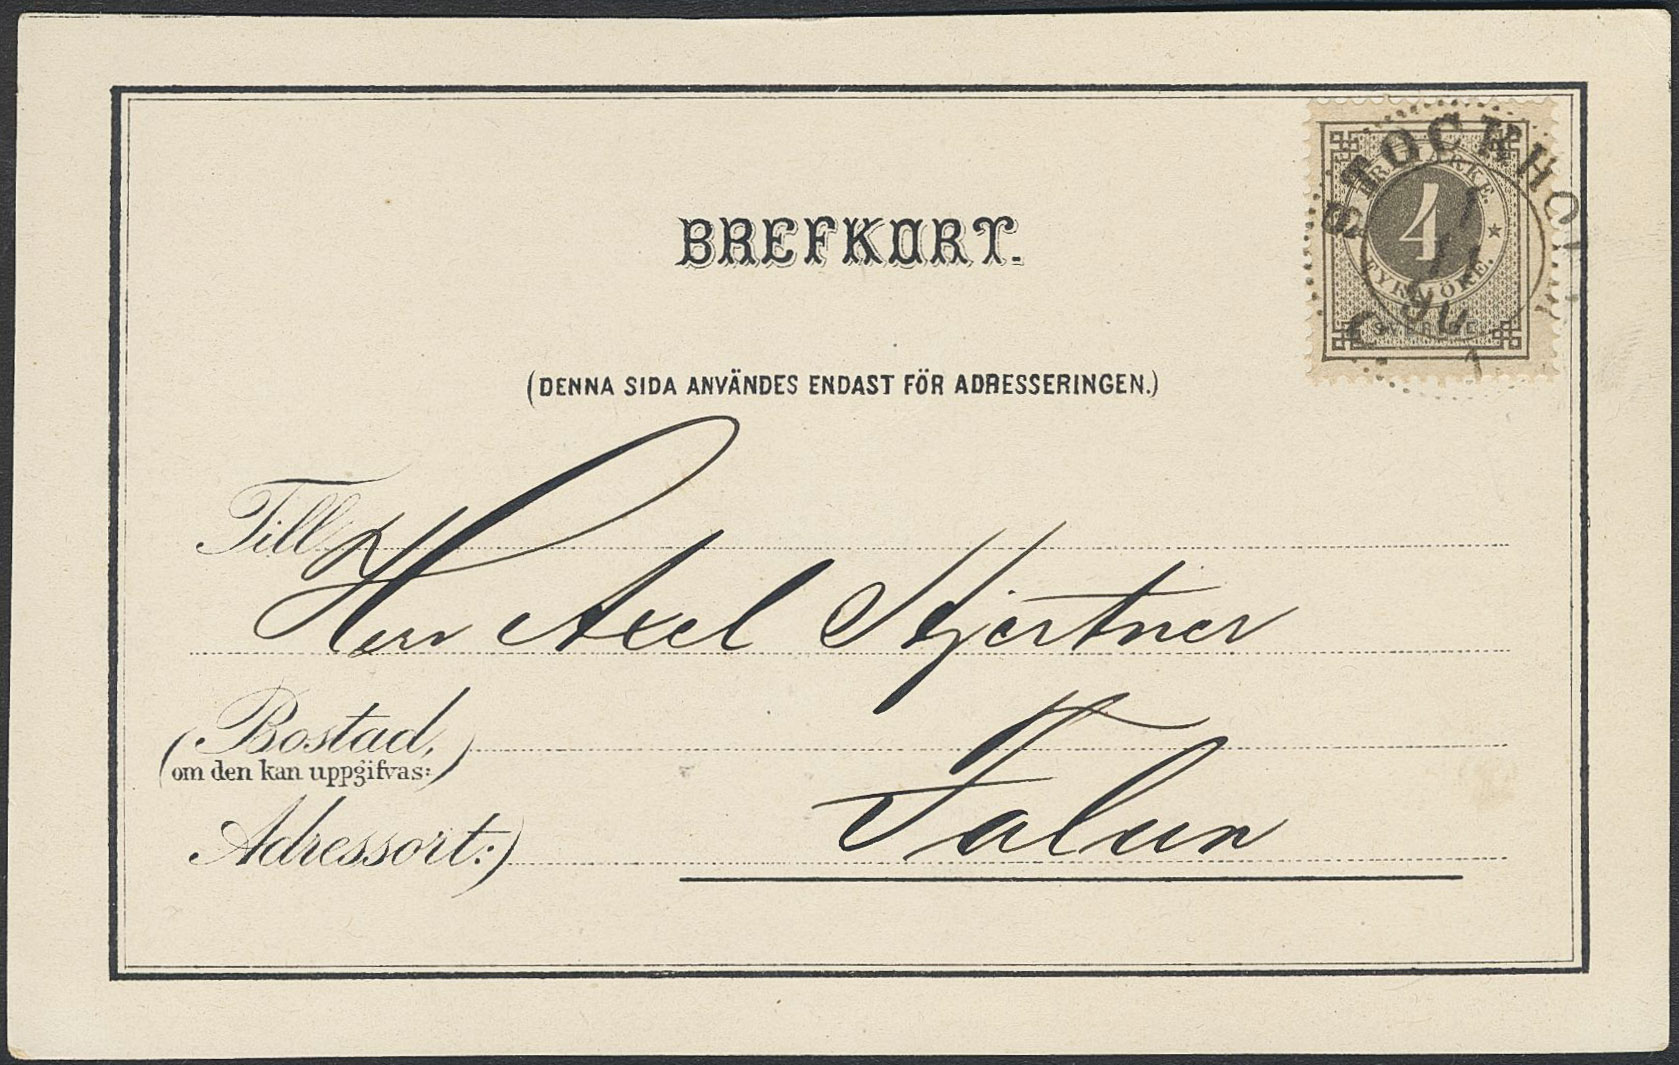 BREFKORT.
STOCKHOLM
1
11
90
FRIMÄRKE.
4
FYRA ÖRE.
SVERIGE.
(DENNA SIDA ANVÄNDES ENDAST FÖR ADRESSERINGEN.)
Till
Herr Axel Hjertner
(Bostad,
om den kan uppgifvas:)
Falun
Adressort:)